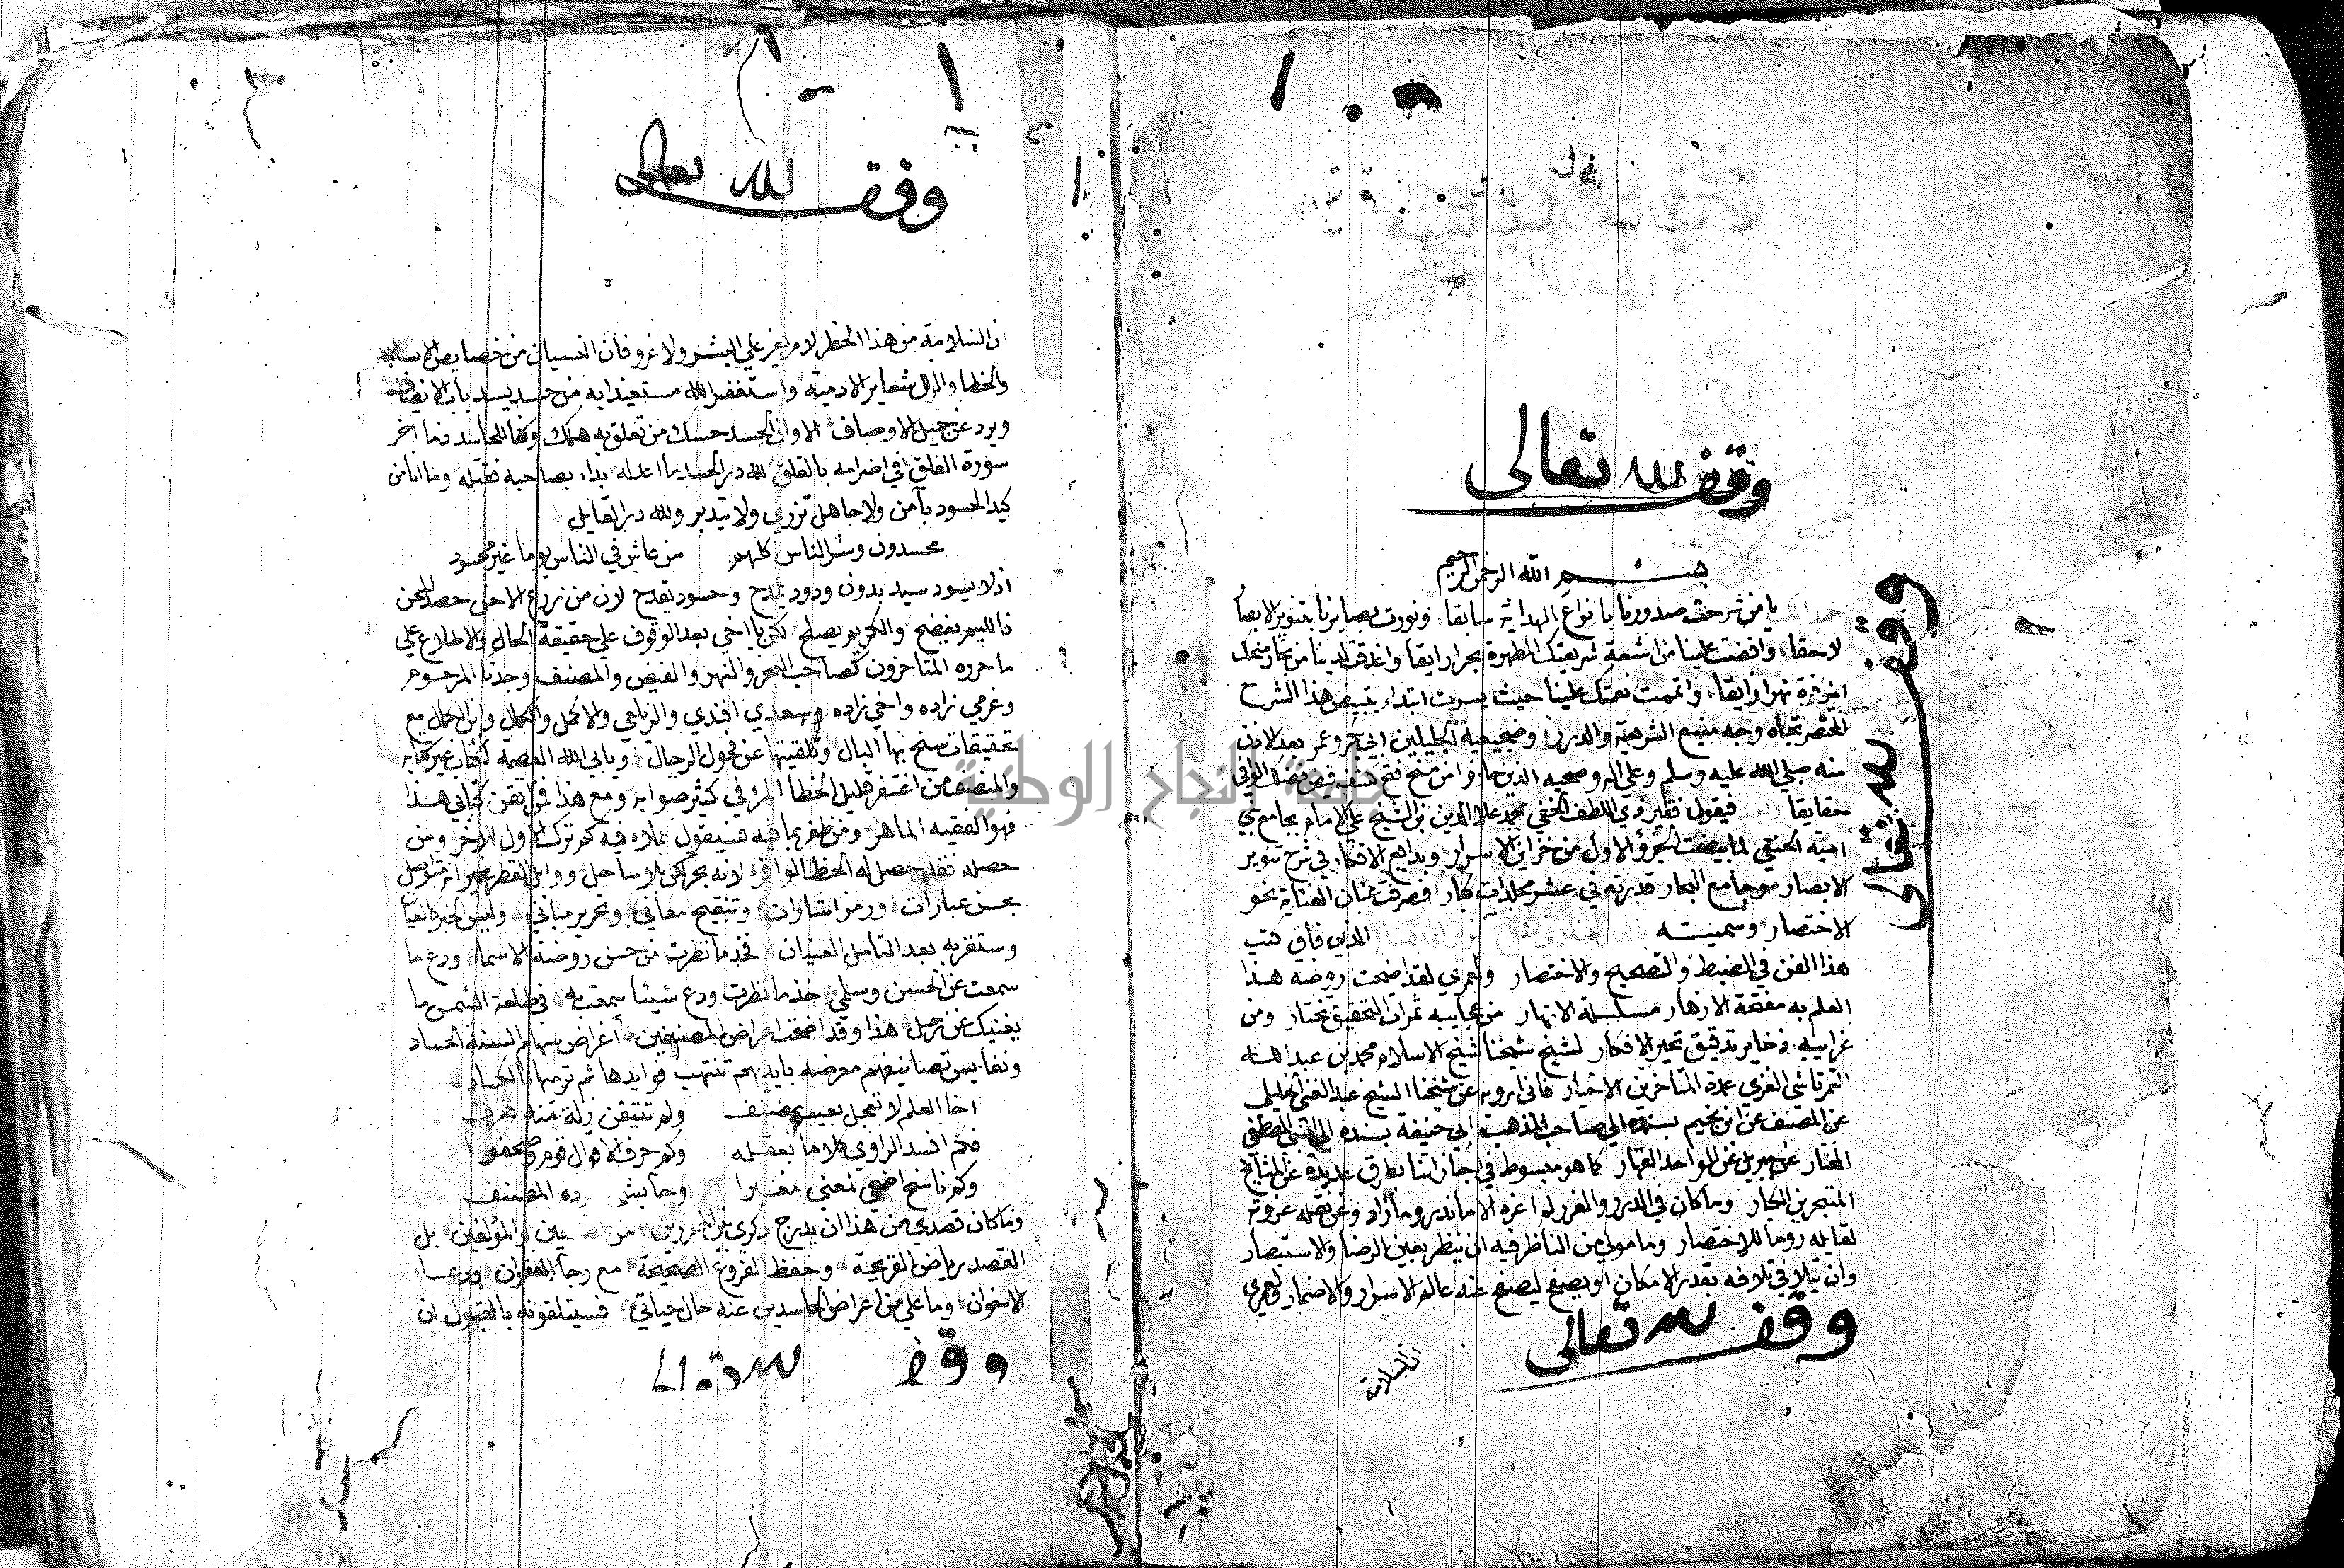 وقف لله تعالى
بسم الله الرحمن الرحيم
حمدا لك يا من شرحت صدورنا بانواع الهداية سابقا ونورت بصايرنا بتنوير الابصا
لاحقا وافضت علينا من اشعة شريعتك المطهرة بحرا رايقا واغدقت لدينا من بحار منحك
الموفرة نهرا فايقا واتممت نعمتك علينا حيث يسرت ابتداء تبييض هذا الشرح
المختصر تجاه وجه منبع الشريعة والدرر وضجيعيه الجليلين ابي بكر وعمر بعد الاذن
منه صلي الله عليه وسلم وعلي اله وصحبه الذين حازوا من منح فتح فيض فضلك الوافي
حقايقا فيقول فقير ذي اللطف الخفي محمد علا الدين بن الشيخ علي الامام بجامع بني
امية الحنفي لما بيضت الجزؤ الاول من خزاين الاسرار وبدايع الافكار في شرح تنوير
الابصار وجامع البحار قدرته في عشر مجلدات كبار فصرفت عنان العناية نحو
الاختصار وسميته الذي فاق كتب
هذا الفن في الضبط والتصحيح والاختصار ولعمري لقد اضحت روضة هذا
العلم به مفتحة الازهار مسلسلة الانهار من عجايبه ثمرات التحقيق تختار ومن
غرايبه ذخاير تدقيق تحير الافكار لشيخ شيخنا شيخ الاسلام محمد بن عبد الله
التمرتاشي الغزي عمدة المتاخرين الاخيار فاني ارويه عن شيخنا الشيخ عبد الغني الخليلي
عن المصنف عن ابن نجيم بسنده الي صاحب المذهب ابي حنيفة بسنده الي النبي المصطفي
المختار عن جبريل عن الواحد القهار كما هو مبسوط في اجازاتنا بطرق عديدة عن المشايخ
المتبحرين الكبار وما كان في الدرر والغرر لم اعزه الا ما ندر وما زاد وعز نقله عزوته
لقايله روما للاختصار ومامولي من الناظر فيه ان ينظر بعين الرضا والاستبصار
وان يتلافي تلافه بقدر الامكان او يصفح ليصفح عنه عالم الاسرار والاضمار ولعمري
وقف لله تعالى
ان السلامة
وقف لله تعالى
وقف لله تعالى
ان السلامة من هذا الخطر لامر يعز علي البشر ولا غرو فان النسيان من خصايص الانسا
والخطا والزلل شعاير الادمية واستغفر الله مستعيذا به من حسد يسد باب الانصاف
ويرد عن جميل الاوصاف الا وان الحسد حسك من تعلق به هلك وكفا للحاسد ذما اخر
سورة الفلق في اضرامه بالقلق لله در الحسد ما اعدله بداء بصاحبه فقتله وما انا من
كيد الحسود بآمن ولا جاهل تزري ولا يتدبر ولله در القايل
يحسدون وشر الناس كلهم من عاش في الناس يوما غير محسود
اذ لا يسود سيد بدون ودود يمدح وحسود يقدح لان من زرع الاحن حصد المحن
فاللييم يفضح والكريم يصلح لكن يا اخي بعد الوقوف علي حقيقة الحال والاطلاع علي
ما حرره المتاخرون كصاحب البحر والنهر والفيض والمصنف وجدنا المرحوم
وعزمي زاده واخي زاده وسعدي افندي والزيلعي والاكمل والكمال وابن الكمال مع
تحقيقات سنح بها البال وتلقيتها عن فحول الرجال ويابي الله العصمة لكتاب غير كتابه
والمنصف من اغتفر قليل الخطا المرؤ في كثير صوابه ومع هذا فمن اتقن كتابي هذا
فهو الفقيه الماهر ومن ظفر بما فيه فسيقول بملاء فيه كم ترك الاول للاخر ومن
حصله فقد حصل له الحظ الوافر لانه بحر لكن بلا ساحل ووابل القطر غير انه متواصل
بحسن عبارات ورمز اشارات وتنقيح معاني وتحرير مباني وليس الخبر كالعيان
وستقر به بعد التامل العينان فخذ ما نظرت من حسن روضه الاسما ودع ما
سمعت عن الحسن وسلمي خذ ما نظرت ودع شيئا سمعت به في طلعة الشمس ما
يغنيك عن زحل هذا وقد اضحت اعراض المصنفين اغراض سهام السنة الحساد
ونفايس تصانيفهم معرضه بايديهم تنتهب فوايدها ثم ترميها بالكساد
اخا العلم لا تعجل بعيب مصنف ولم تتيقن زلة منه تعرف
فكم افسد الراوي كلاما بعقله وكم حرف الاقوال قوم وصحفوا
وكم ناسخ اضحي لمعني مغيرا وجا بشي رده المصنف
وما كان قصدي من هذا ان يدرج ذكري بين المحررين من المصنفين والمؤلفين بل
القصد رياض القريحة وحفظ الفروع الصحيحة مع رجآ الغفران ودعا
الاخوان وما علي من اعراض الحاسدين عنه حال حياتي فسيتلقونه بالقبول ان
وقف لله